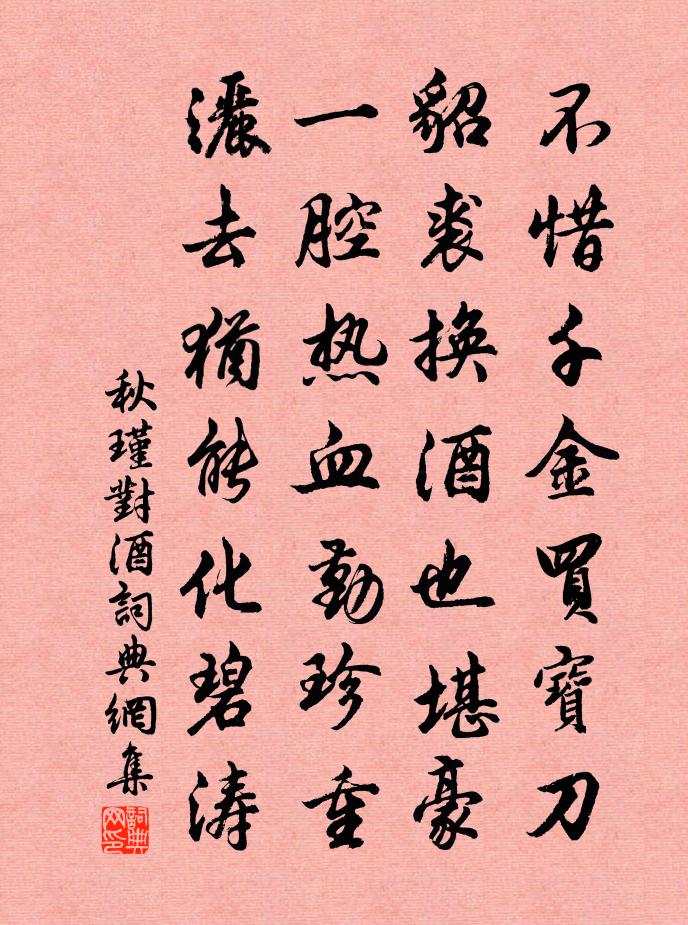 不惜千金買寶刀
貂裘換酒也堪豪
一腔热血勤珍重
灑去猶能化碧涛
秋瑾對酒詞典網集
詞典网印